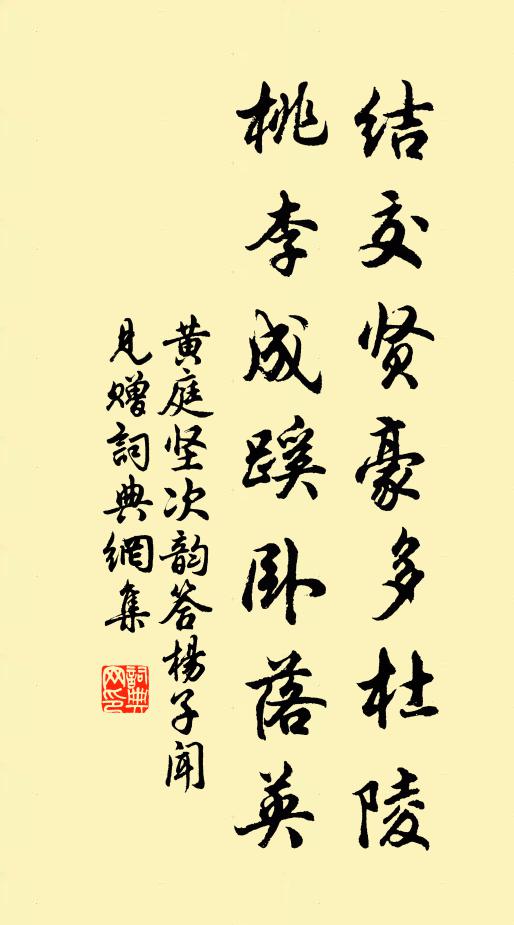 结交贤豪多杜陵
桃李成蹊卧落英
黄庭坚次韵答杨子闻
见赠詞典網集
詞典网印